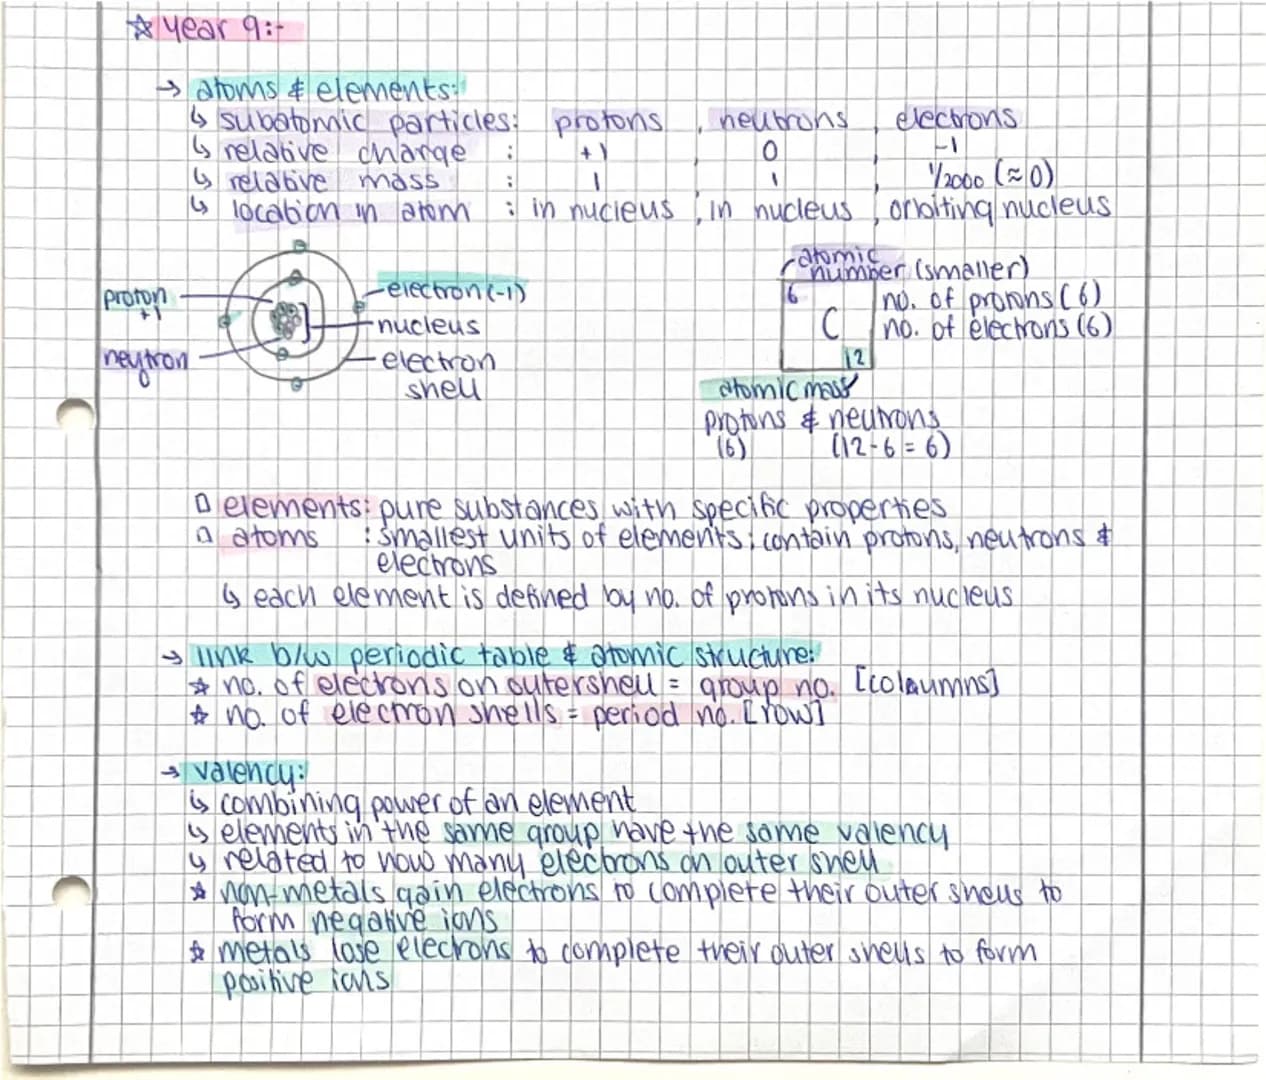 ☆ year 9:-
→ atoms & elements:
↳ subatomic particles: protons , neutrons , electrons
↳ relative charge : +1 , 0 , -1
↳ relative mass : 1 , 1 , 1/2000 (≈0)
↳ location in atom : in nucleus , in nucleus , orbiting nucleus
proton
+1
neutron
0
electron (-1)
nucleus
electron
shell
atomic
number (smaller)
6
C
12
no. of protons (6)
no. of electrons (6)
atomic mass
protons & neutrons
(6) (12-6=6)
▯ elements: pure substances with specific properties
▯ atoms : smallest units of elements; contain protons, neutrons &
electrons
↳ each element is defined by no. of protons in its nucleus
→ link b/w periodic table & atomic structure:
☆ no. of electrons on outershell = group no. [colaumns]
☆ no. of electron shells = period no. [row]
→ valency:
↳ combining power of an element
↳ elements in the same group have the same valency
↳ related to how many electrons on outer shell
☆ non-metals gain electrons to complete their outer shells to
form negative ions
☆ metals lose electrons to complete their outer shells to form
positive ions